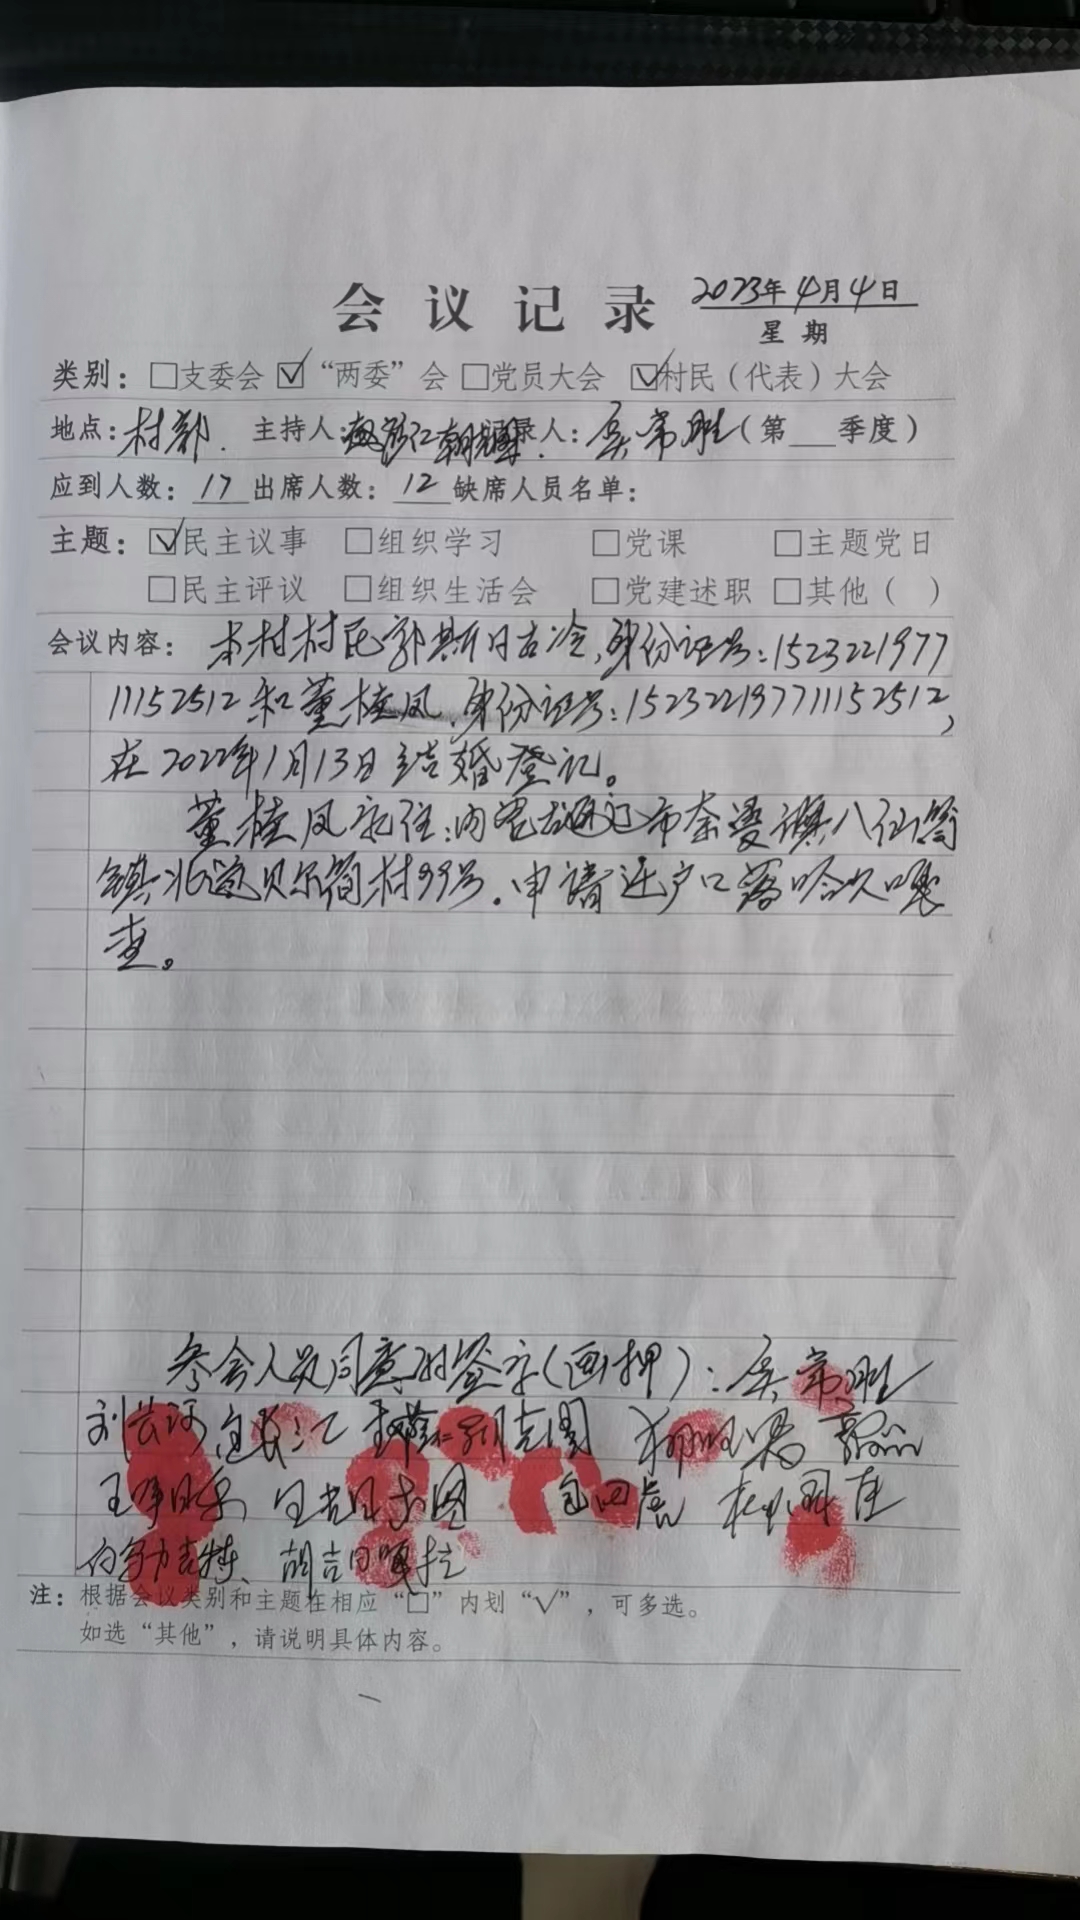 会议记录 2023年4月4日
星期
类别：□支委会 ☑“两委”会 □党员大会 ☑村民（代表）大会
地点：村部. 主持人： 录人：吴常胜（第___季度）
应到人数：17 出席人数：12 缺席人员名单：
主题：☑民主议事 □组织学习 □党课 □主题党日
□民主评议 □组织生活会 □党建述职 □其他（ ）
会议内容：本村村民郭斯日古冷,身份证号:1523221977
11152512和董桂凤.身份证号:152322197711152512,
在2022年1月13日结婚登记。
董桂凤永住:内蒙古通辽市奈曼旗八仙筒
镇北 贝尔筒村99号.申请迁户口落哈久嘎
查。
参会人员同意附签字(画押):吴常胜
刘长河 包长江
包四虎
胡吉日嘎拉
注：根据会议类别和主题在相应“□”内划“√”，可多选。
如选“其他”，请说明具体内容。